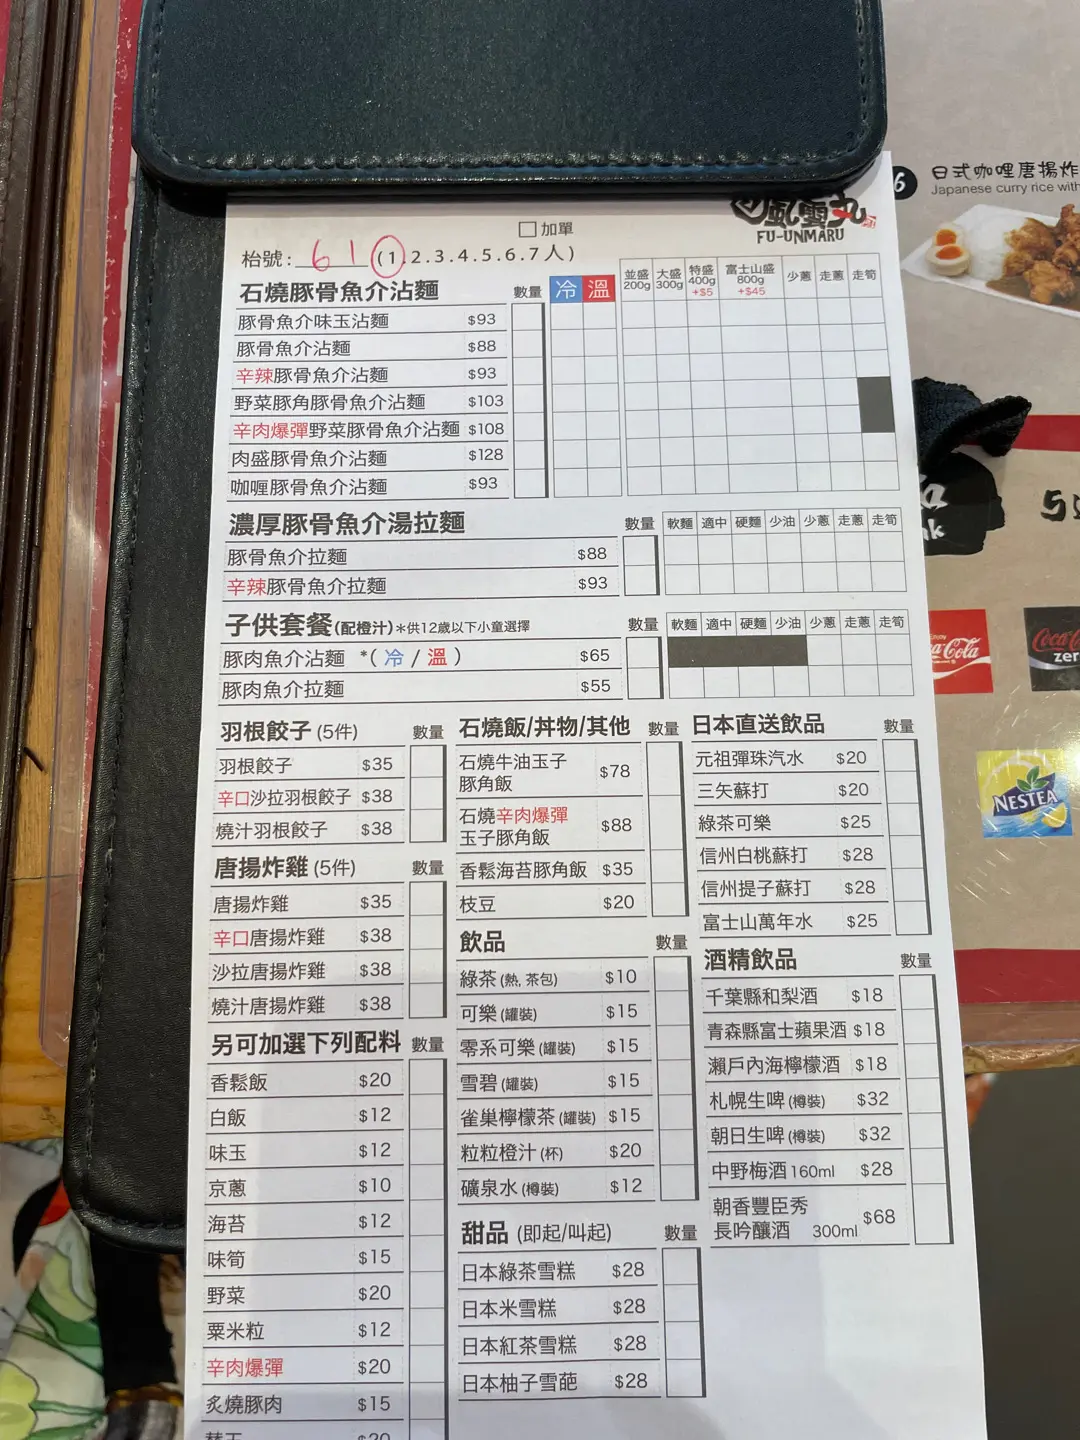 6
日式咖哩唐揚炸
Japanese curry rice with
風雲丸
FU-UNMARU
加單
枱號: 61 (1.2.3.4.5.6.7人)
石燒豚骨魚介沾麵 數量 冷 溫 並盛 200g 大盛 300g 特盛 400g +$5 富士山盛 800g +$45 少蔥 走蔥 走筍
豚骨魚介味玉沾麵 $93
豚骨魚介沾麵 $88
辛辣豚骨魚介沾麵 $93
野菜豚角豚骨魚介沾麵 $103
辛肉爆彈野菜豚骨魚介沾麵 $108
肉盛豚骨魚介沾麵 $128
咖喱豚骨魚介沾麵 $93
濃厚豚骨魚介湯拉麵 數量 軟麵 適中 硬麵 少油 少蔥 走蔥 走筍
豚骨魚介拉麵 $88
辛辣豚骨魚介拉麵 $93
子供套餐(配橙汁)*供12歲以下小童選擇 數量 軟麵 適中 硬麵 少油 少蔥 走蔥 走筍
豚肉魚介沾麵 *( 冷 / 溫 ) $65
豚肉魚介拉麵 $55
羽根餃子 (5件) 數量
羽根餃子 $35
辛口沙拉羽根餃子 $38
燒汁羽根餃子 $38
唐揚炸雞 (5件) 數量
唐揚炸雞 $35
辛口唐揚炸雞 $38
沙拉唐揚炸雞 $38
燒汁唐揚炸雞 $38
另可加選下列配料 數量
香鬆飯 $20
白飯 $12
味玉 $12
京蔥 $10
海苔 $12
味筍 $15
野菜 $20
粟米粒 $12
辛肉爆彈 $20
炙燒豚肉 $15
$20
石燒飯/丼物/其他 數量
石燒牛油玉子
豚角飯 $78
石燒辛肉爆彈
玉子豚角飯 $88
香鬆海苔豚角飯 $35
枝豆 $20
飲品 數量
綠茶 (熱, 茶包) $10
可樂 (罐裝) $15
零系可樂 (罐裝) $15
雪碧 (罐裝) $15
雀巢檸檬茶 (罐裝) $15
粒粒橙汁 (杯) $20
礦泉水 (樽裝) $12
甜品 (即起/叫起) 數量
日本綠茶雪糕 $28
日本米雪糕 $28
日本紅茶雪糕 $28
日本柚子雪葩 $28
日本直送飲品 數量
元祖彈珠汽水 $20
三矢蘇打 $20
綠茶可樂 $25
信州白桃蘇打 $28
信州提子蘇打 $28
富士山萬年水 $25
酒精飲品 數量
千葉縣和梨酒 $18
青森縣富士蘋果酒 $18
瀨戶內海檸檬酒 $18
札幌生啤 (樽裝) $32
朝日生啤 (樽裝) $32
中野梅酒 160ml $28
朝香豐臣秀
長吟釀酒 300ml $68
Coca-Cola
Coca-Cola
zero
NESTEA